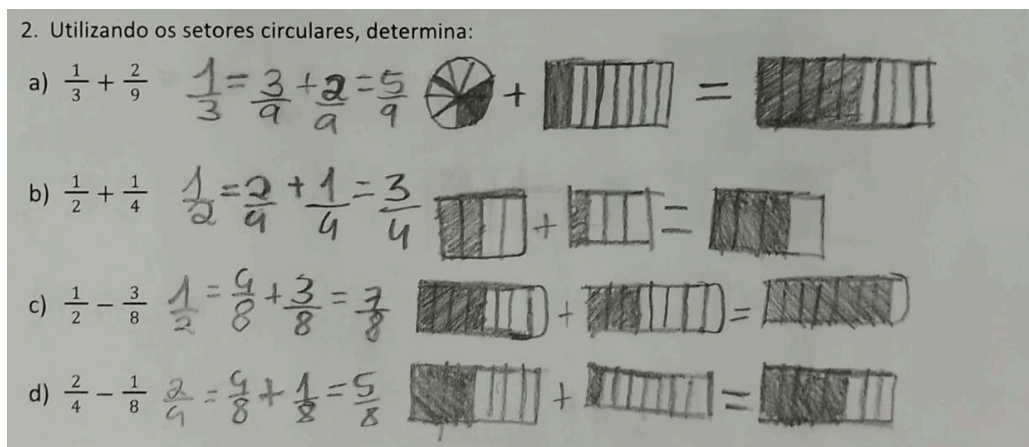 2. Utilizando os setores circulares, determina:
a) 1/3 + 2/9 1/3 = 3/9 + 2/9 = 5/9 + =
b) 1/2 + 1/4 1/2 = 2/4 + 1/4 = 3/4 + =
c) 1/2 − 3/8 1/2 = 4/8 + 3/8 = 7/8 + =
d) 2/4 − 1/8 2/4 = 4/8 + 1/8 = 5/8 + =